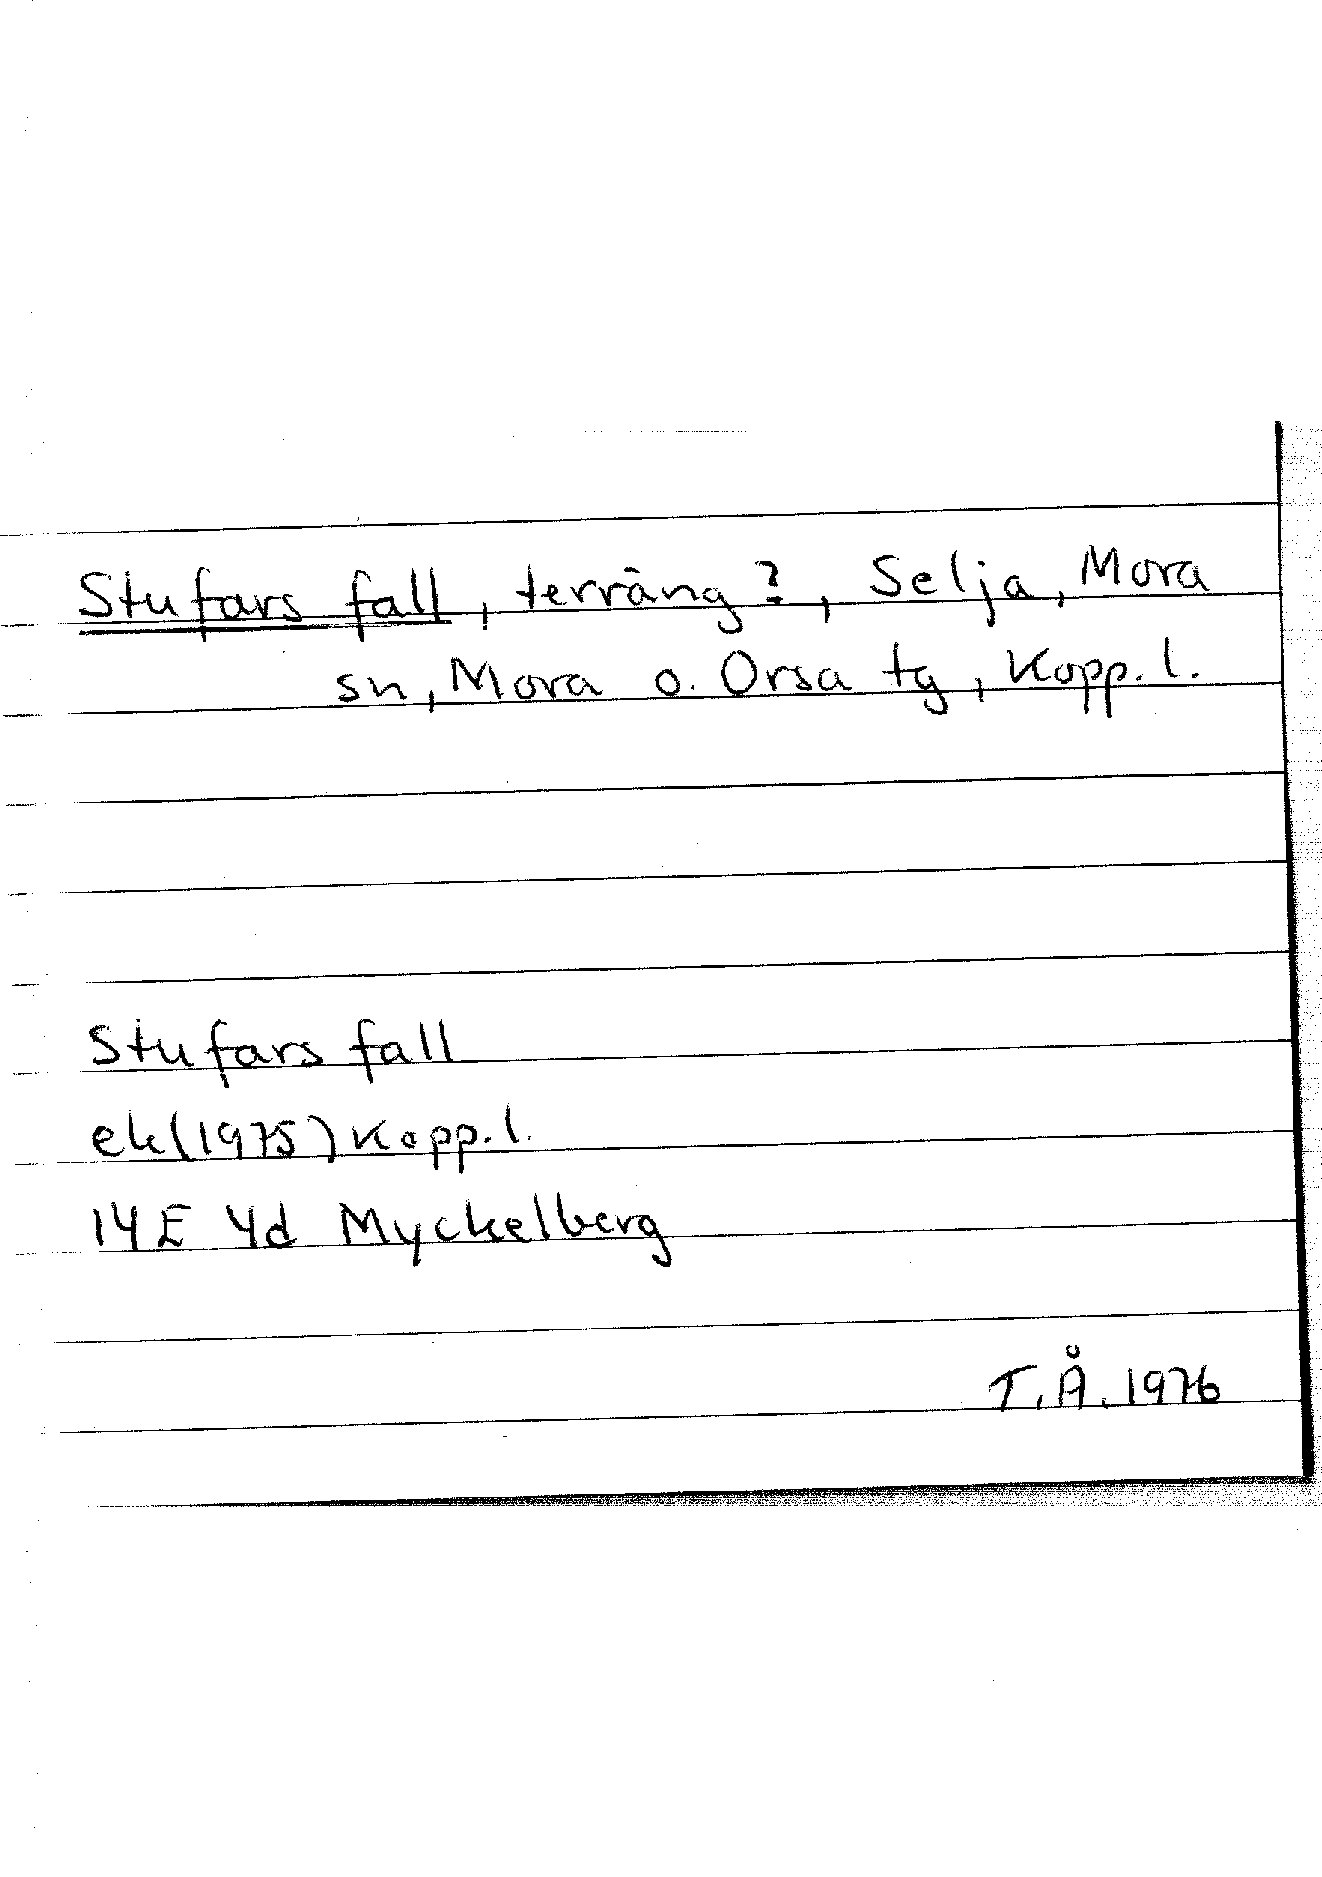 Stufars fall, terräng?, Selja, Mora
sn, Mora o. Orsa tg, Kopp. l.
Stufars fall
ek(1975) Kopp. l.
14E 4d Myckelberg
T.Å. 1976